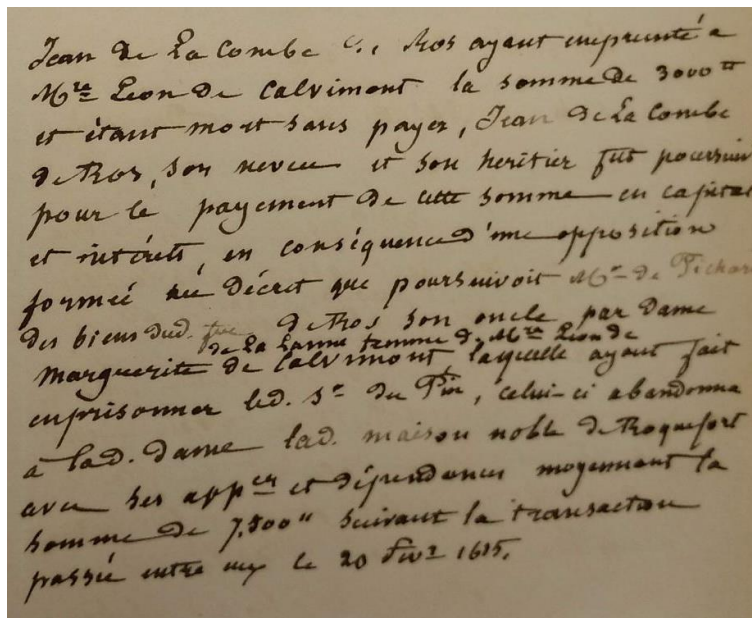 Jean de La Combe Sr. Ros ayant emprunté a
Mre Leon de Calvimont la somme de 3000tt
et étant mort sans payer, Jean de La Combe
de Ros, son neveu et son heritier fut poursuivi
pour le payement de cette somme en capital
et intérêts, en conséquence d'une opposition
formée au décret que poursuivoit Mr de Pichar
des biens dud. feu de Ros son oncle par dame
de La Lanne femme de Mre Leon de
Marguerite de Calvimont laquelle ayant fait
enprisonner led. Sr du Pin, celui-ci abandonna
à lad. dame lad. maison noble de Roquefort
avec ses appces et dépendances moyennant la
somme de 7,500" suivant la transaction
passée entre eux le 20 fivr 1615.